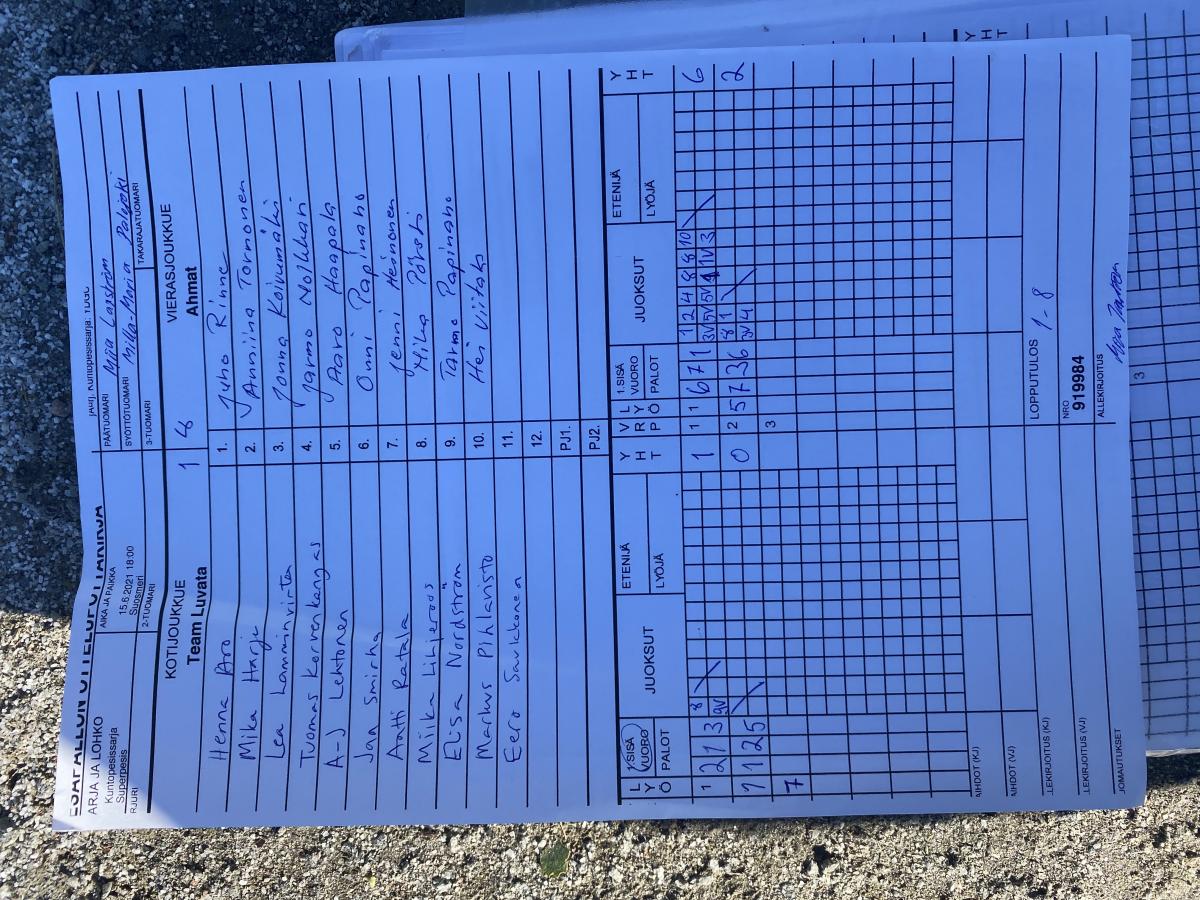 ESÄPALLON OTTELUPÖYTÄKIRJA
ARJA JA LOHKO
Kuntopesissarja
Superpesis
AIKA JA PAIKKA
15.6.2021 18:00
Suosmeri
PÄÄTUOMARI
SYÖTTÖTUOMARI Milla-Maria
RJURI
2-TUOMARI
3-TUOMARI
TAKARAJATUOMARI
KOTIJOUKKUE 1
Team Luvata
8 VIERASJOUKKUE
Ahmat
Henna Aro 1. Juho Rinne
Mika Harju 2. Anniina Tormonen
Lea Lamminvirta 3. Jonna Koivumäki
Tuomas Korvenkangas 4. Jarmo
A-J Lehtonen 5. Aaro Haapala
Jan 6. Onni Papinaho
Antti Ratala 7. Jenni Heinonen
Miika Liljeroos 8. Mika
Elisa Nordström 9. Tarmo Papinaho
Markus Pihlavisto 10.
Eero Savikkonen 11.
12.
PJ1.
PJ2.
L Y Ö 1.SISÄ VUORO PALOT JUOKSUT ETENIJÄ LYÖJÄ Y H T V R P L Y Ö 1.SISÄ VUORO PALOT JUOKSUT ETENIJÄ LYÖJÄ Y H T
1 2 1 3 8 9V 1 1 1 6 7 1 1 2 4 8 8 10 3V 5V 5V 1V 3 6
1 1 2 5 0 2 5 7 3 6 8 1 3V 4 2
7 3
AIHDOT (KJ)
AIHDOT (VJ)
LOPPUTULOS 1-8
LEKIRJOITUS (KJ)
NRO
919984
LEKIRJOITUS (VJ)
ALLEKIRJOITUS
JOMAUTUKSET
Y H T
3